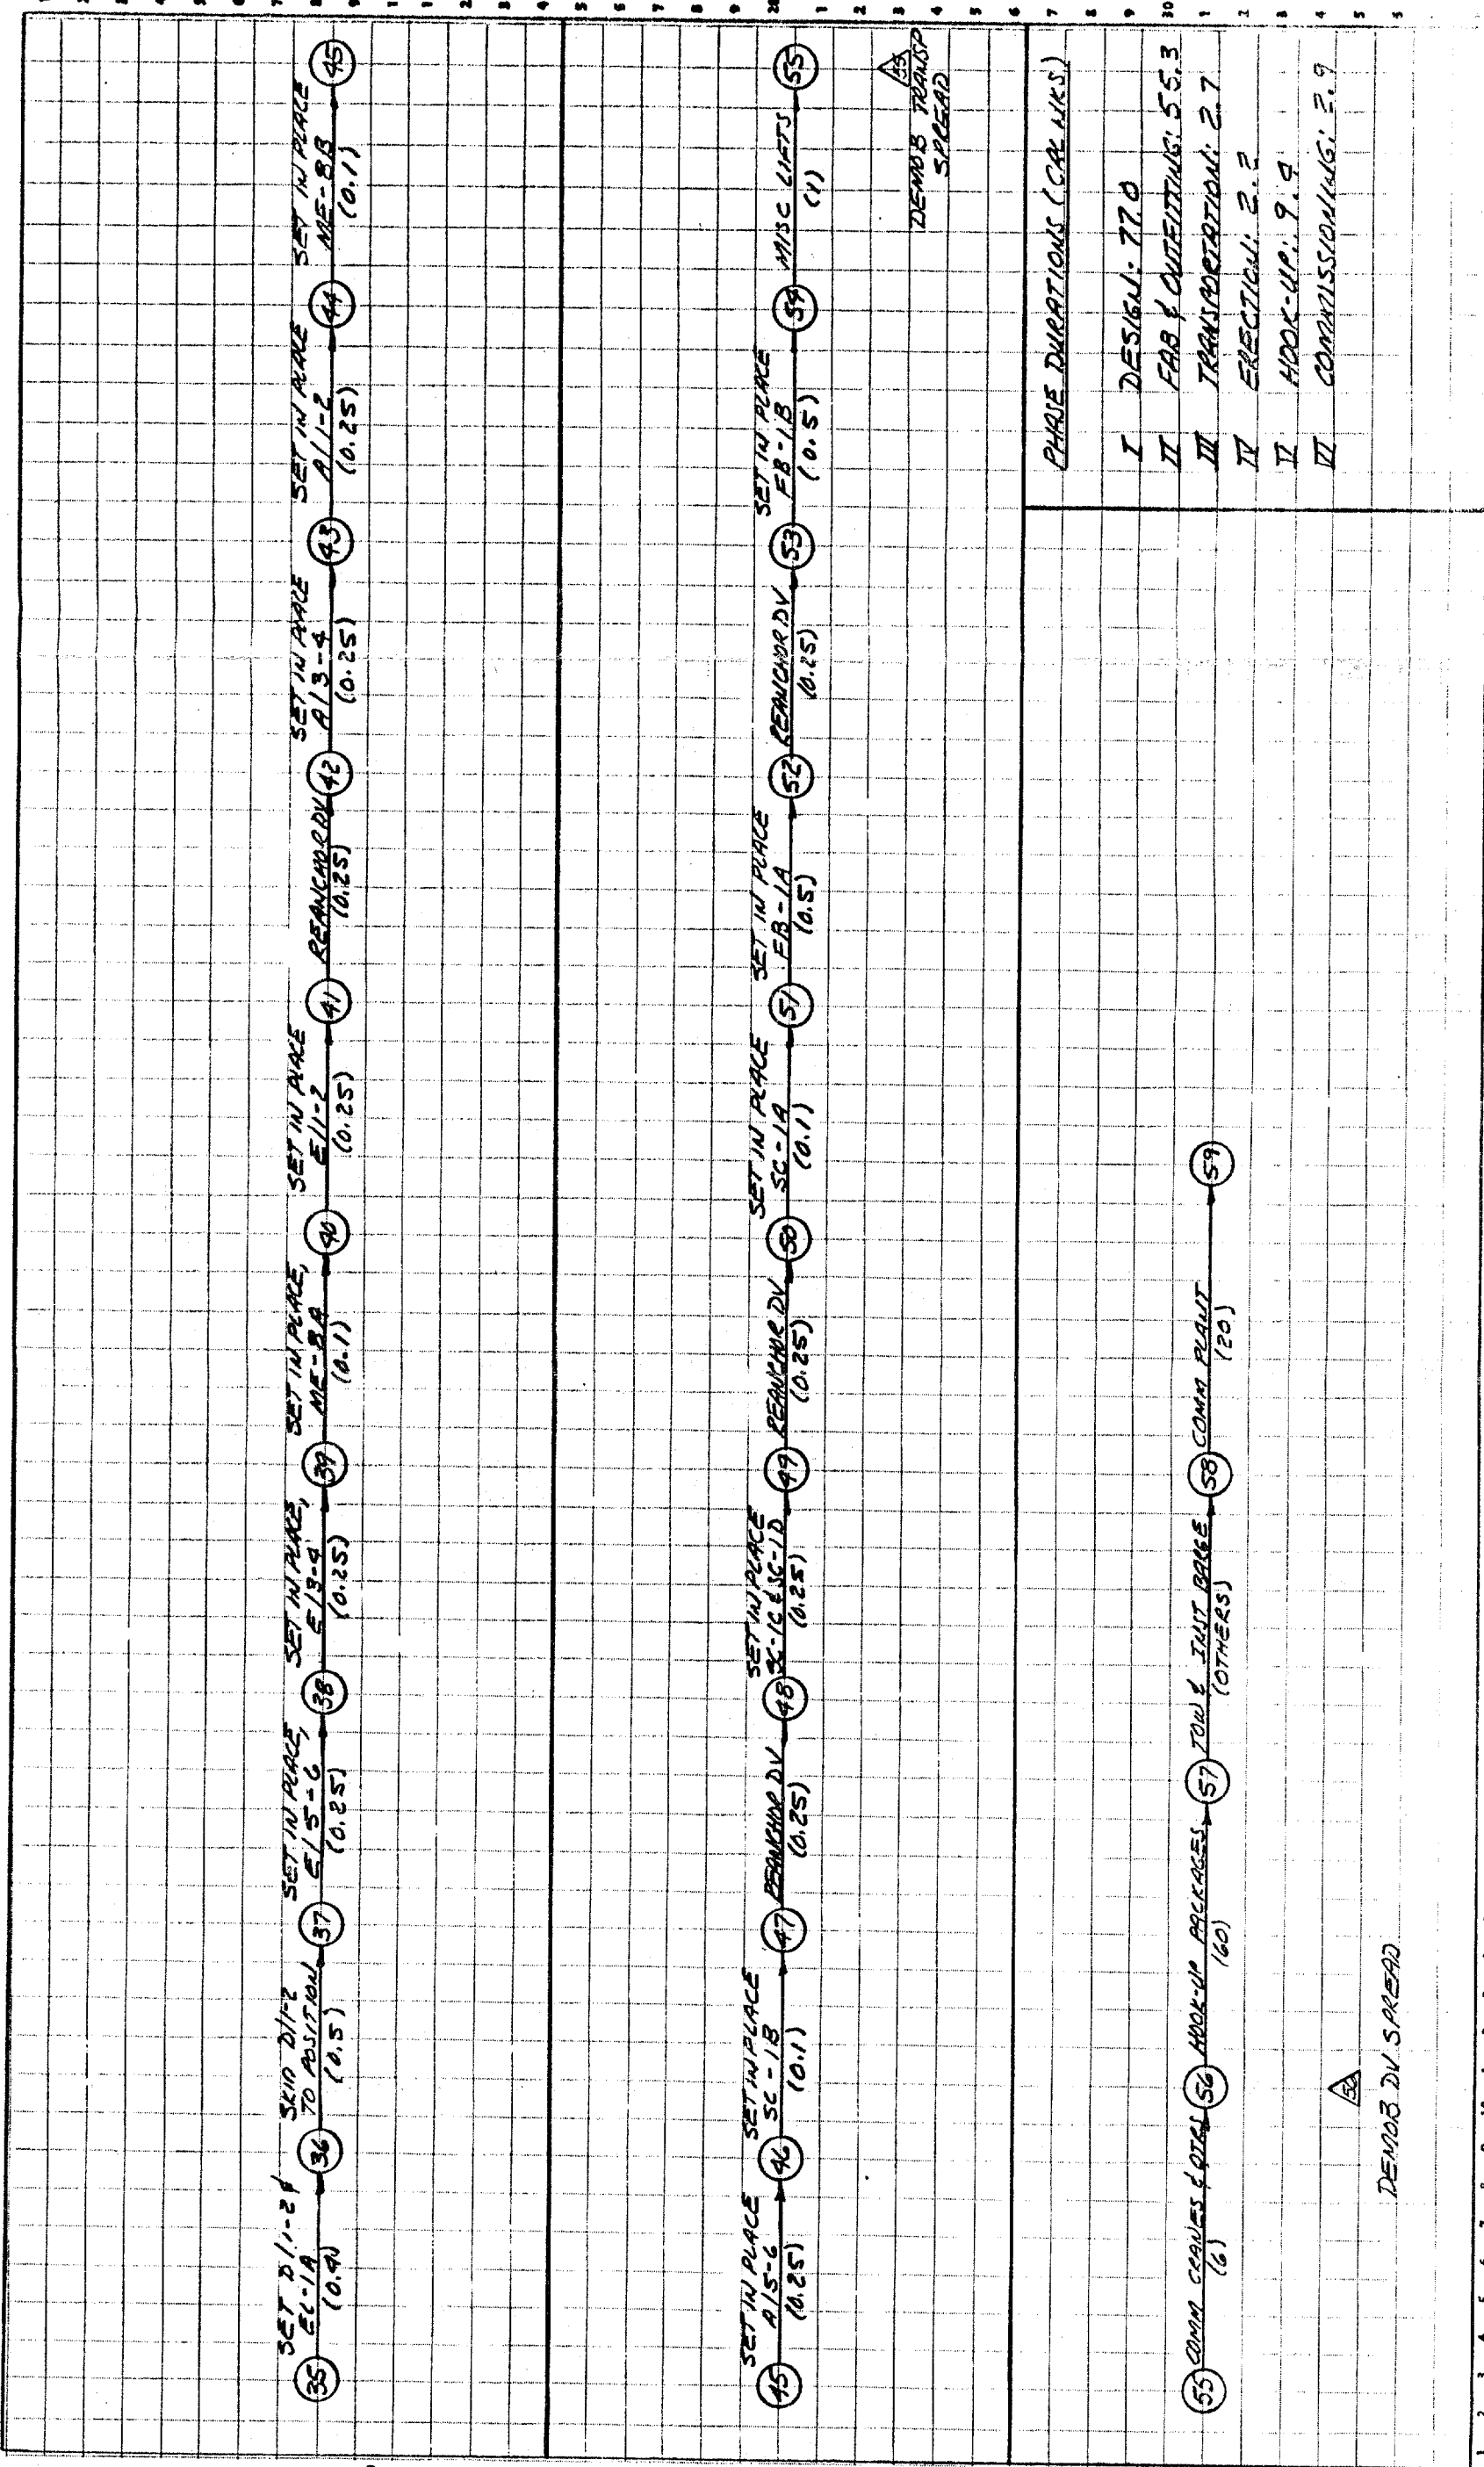 SET D/1-2 &
EL-1A
(0.4)
SKID D/1-2
TO POSITION
(0.5)
SET IN PLACE,
E/5-6
(0.25)
SET IN PLACE,
E/3-4
(0.25)
SET IN PLACE,
ME-8A
(0.1)
SET IN PLACE
E/1-2
(0.25)
REANCHOR DV
(0.25)
SET IN PLACE
A/3-4
(0.25)
SET IN PLACE
A/1-2
(0.25)
SET IN PLACE
ME-8B
(0.1)
35 36 37 38 39 40 41 42 43 44 45
SET IN PLACE
A/5-6
(0.25)
SET IN PLACE
SC-1B
(0.1)
REANCHOR DV
(0.25)
SET IN PLACE
SC-1C & SC-1D
(0.25)
REANCHOR DV
(0.25)
SET IN PLACE
SC-1A
(0.1)
SET IN PLACE
FB-1A
(0.5)
REANCHOR DV
(0.25)
SET IN PLACE
FB-1B
(0.5)
MISC LIFTS
(1)
45 46 47 48 49 50 51 52 53 54 55
DEMOB TRANSP
SPREAD
55 COMM CRANES & QTRS 56 HOOK-UP PACKAGES 57 TOW & INST BARGE 58 COMM PLANT 59
(6) (60) (OTHERS) (20)
56
DEMOB DV SPREAD
PHASE DURATIONS (CAL WKS)
I DESIGN: 77.0
II FAB & OUTFITTING: 55.3
III TRANSPORTATION: 2.7
IV ERECTION: 2.2
V HOOK-UP: 9.4
VI COMMISSIONING: 2.9